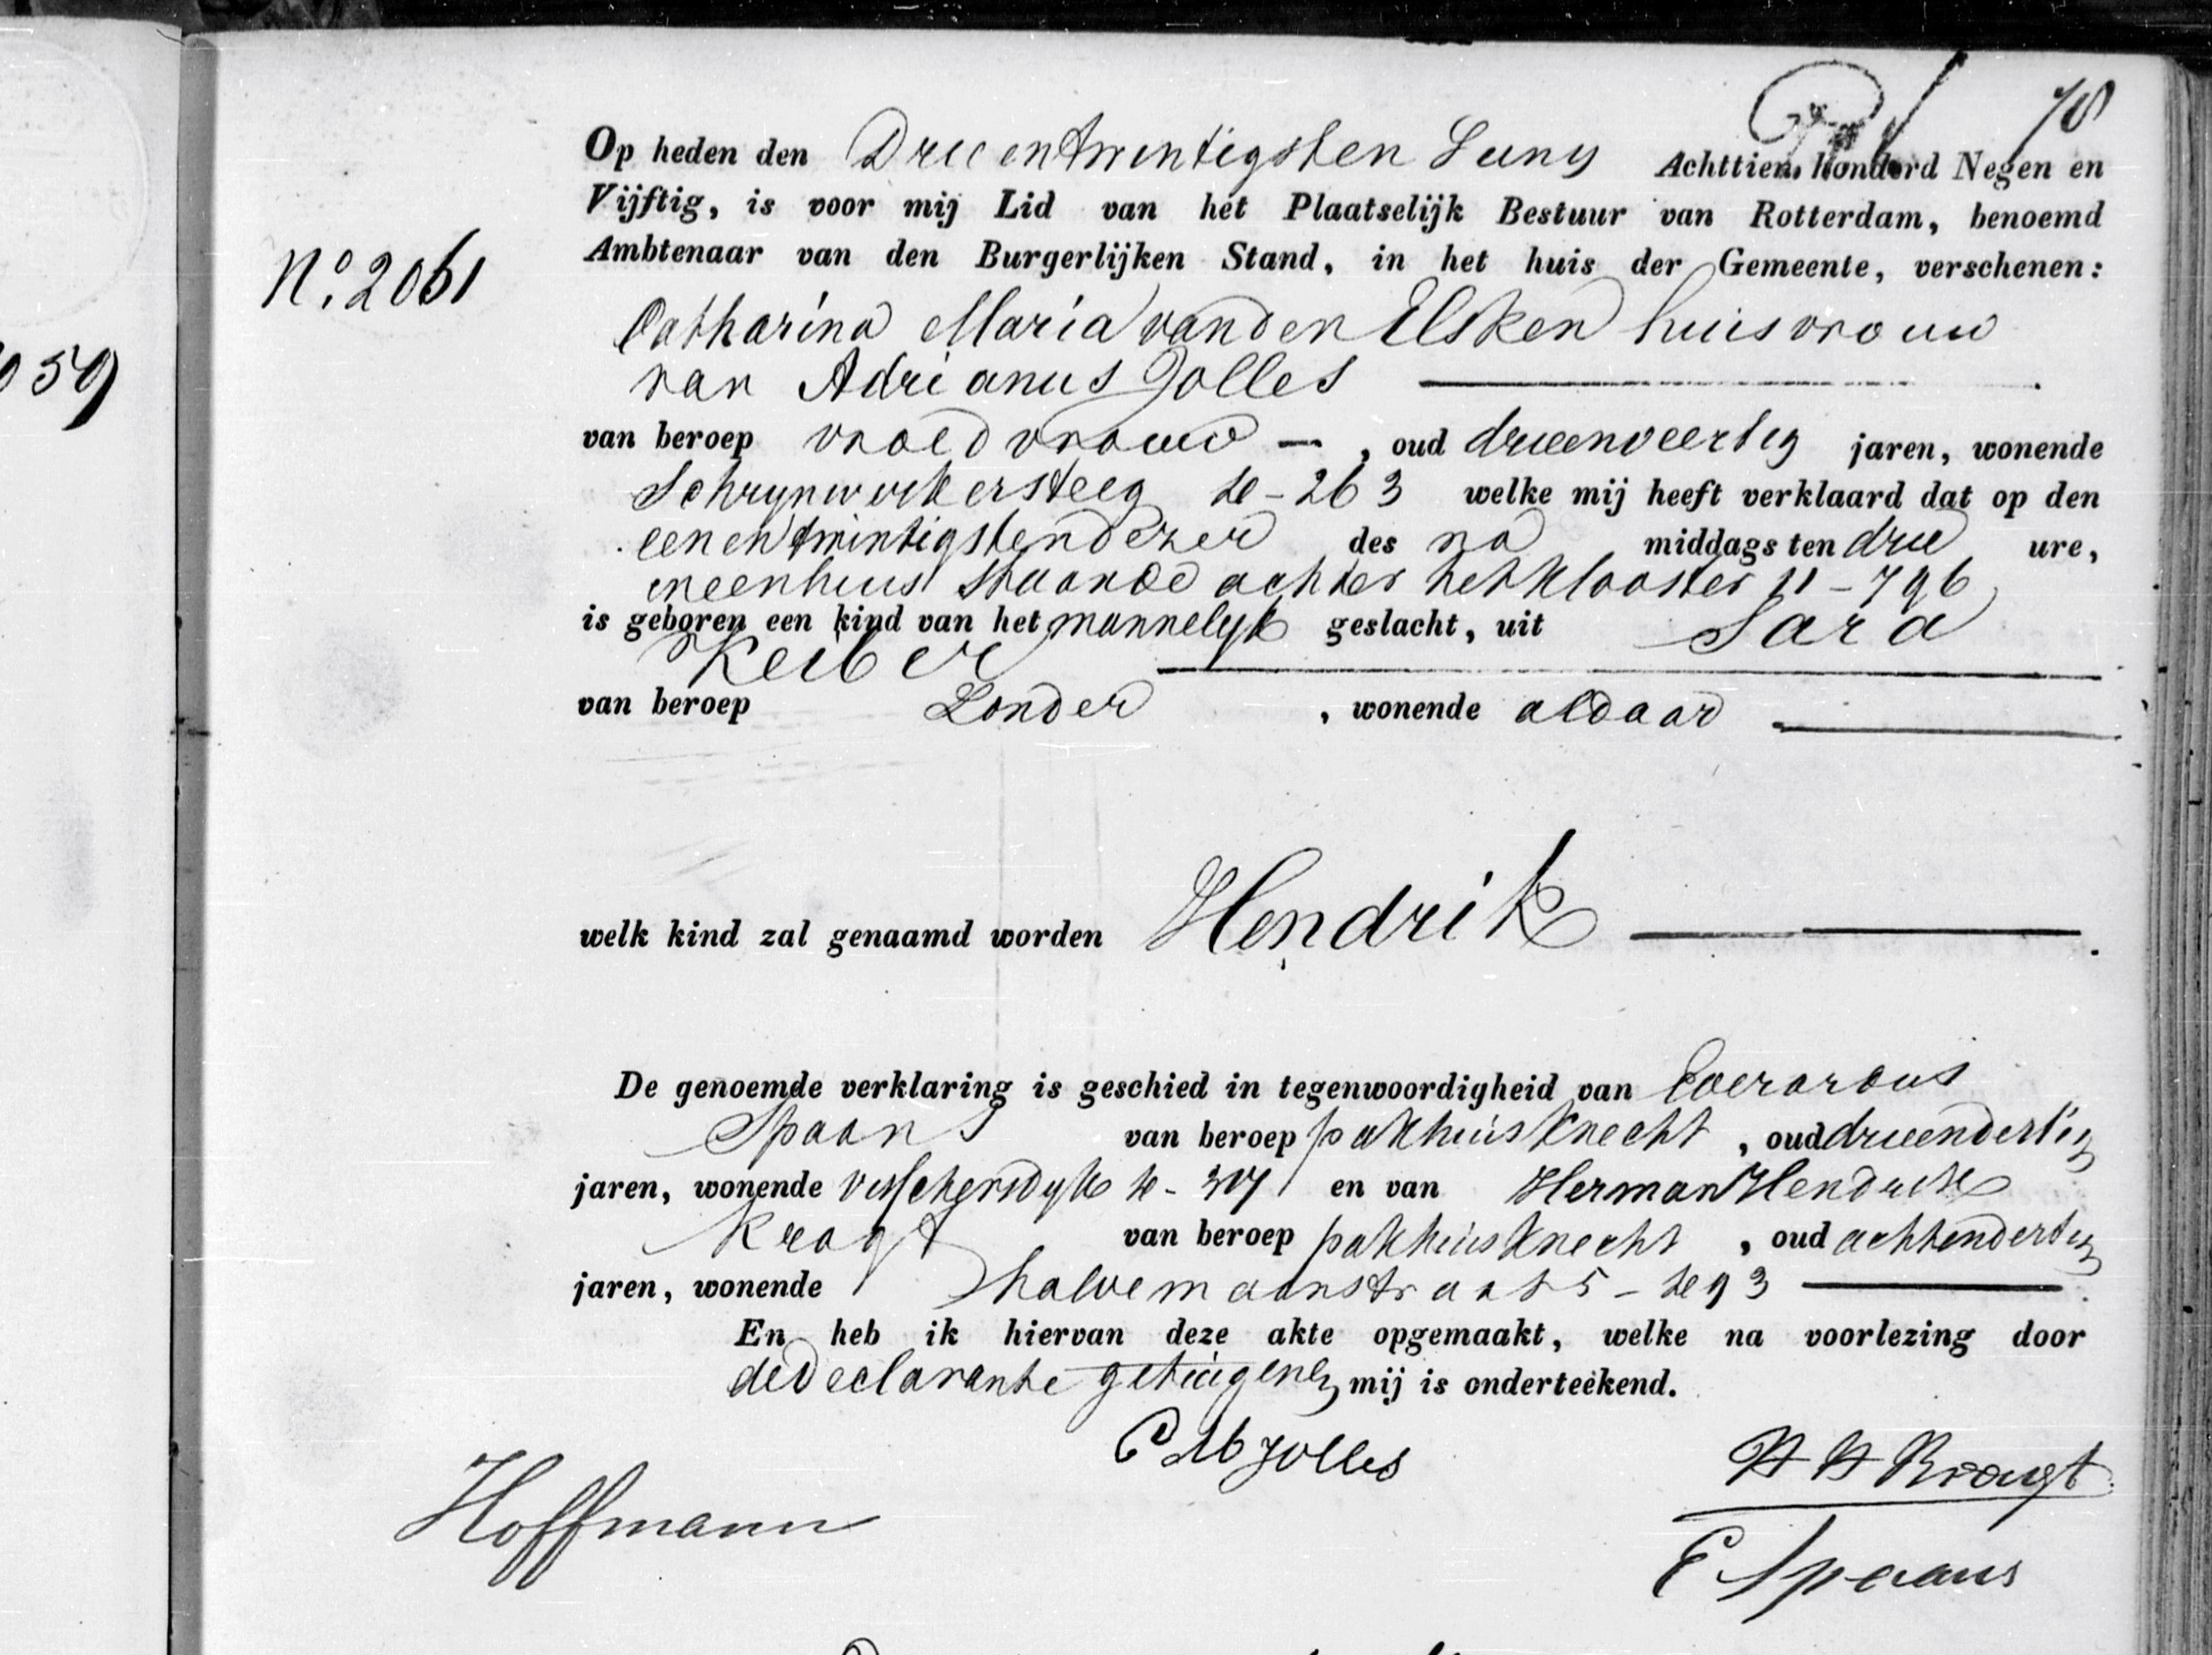 70
Op heden den Drieentwintigsten Juny Achttien honderd Negen en
Vijftig, is voor mij Lid van het Plaatselijk Bestuur van Rotterdam, benoemd
Ambtenaar van den Burgerlijken Stand, in het huis der Gemeente, verschenen:
No. 2061
Catharina Maria van den Elsken huisvrouw
059
van Adrianus Jolles
van beroep vroedvrouw —, oud drieenveertig jaren, wonende
Schrynwerkersteeg 263 welke mij heeft verklaard dat op den
eenentwintigsten dezer des na middags ten drie ure,
in een huis staande achter het klooster 11-796
is geboren een kind van het mannelyk geslacht, uit Sara
Keiber
van beroep Zonder, wonende aldaar
welk kind zal genaamd worden Hendrik
De genoemde verklaring is geschied in tegenwoordigheid van Everardus
Spaans van beroep pakhuisknecht, oud drieendertig
jaren, wonende Visschersdyk 307 en van Herman Hendrik
Kragt van beroep pakhuisknecht, oud achtendertig
jaren, wonende halvemaanstraat 5 - 93
En heb ik hiervan deze akte opgemaakt, welke na voorlezing door
de declarante getuigen en mij is onderteekend.
C M Jolles
H H Kragt
Hoffmann
E Spaans